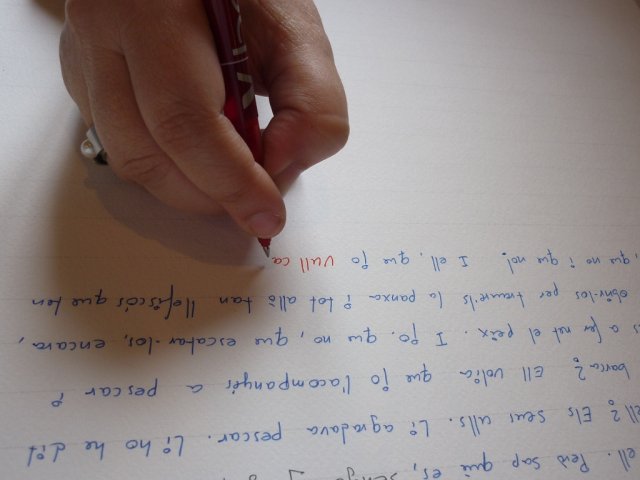 ell. Però sap què és,
ell? Els seus ulls. Li agradava pescar. Li ho he dit
barca? Ell volia que jo l'acompanyés a pescar i
a fer net el peix. I jo, que no, que escatar-los, encara,
obrir-los per treure'ls la panxa i tot allò tan llefiscós que ten
, que no i que no! I ell, que jo vull ca